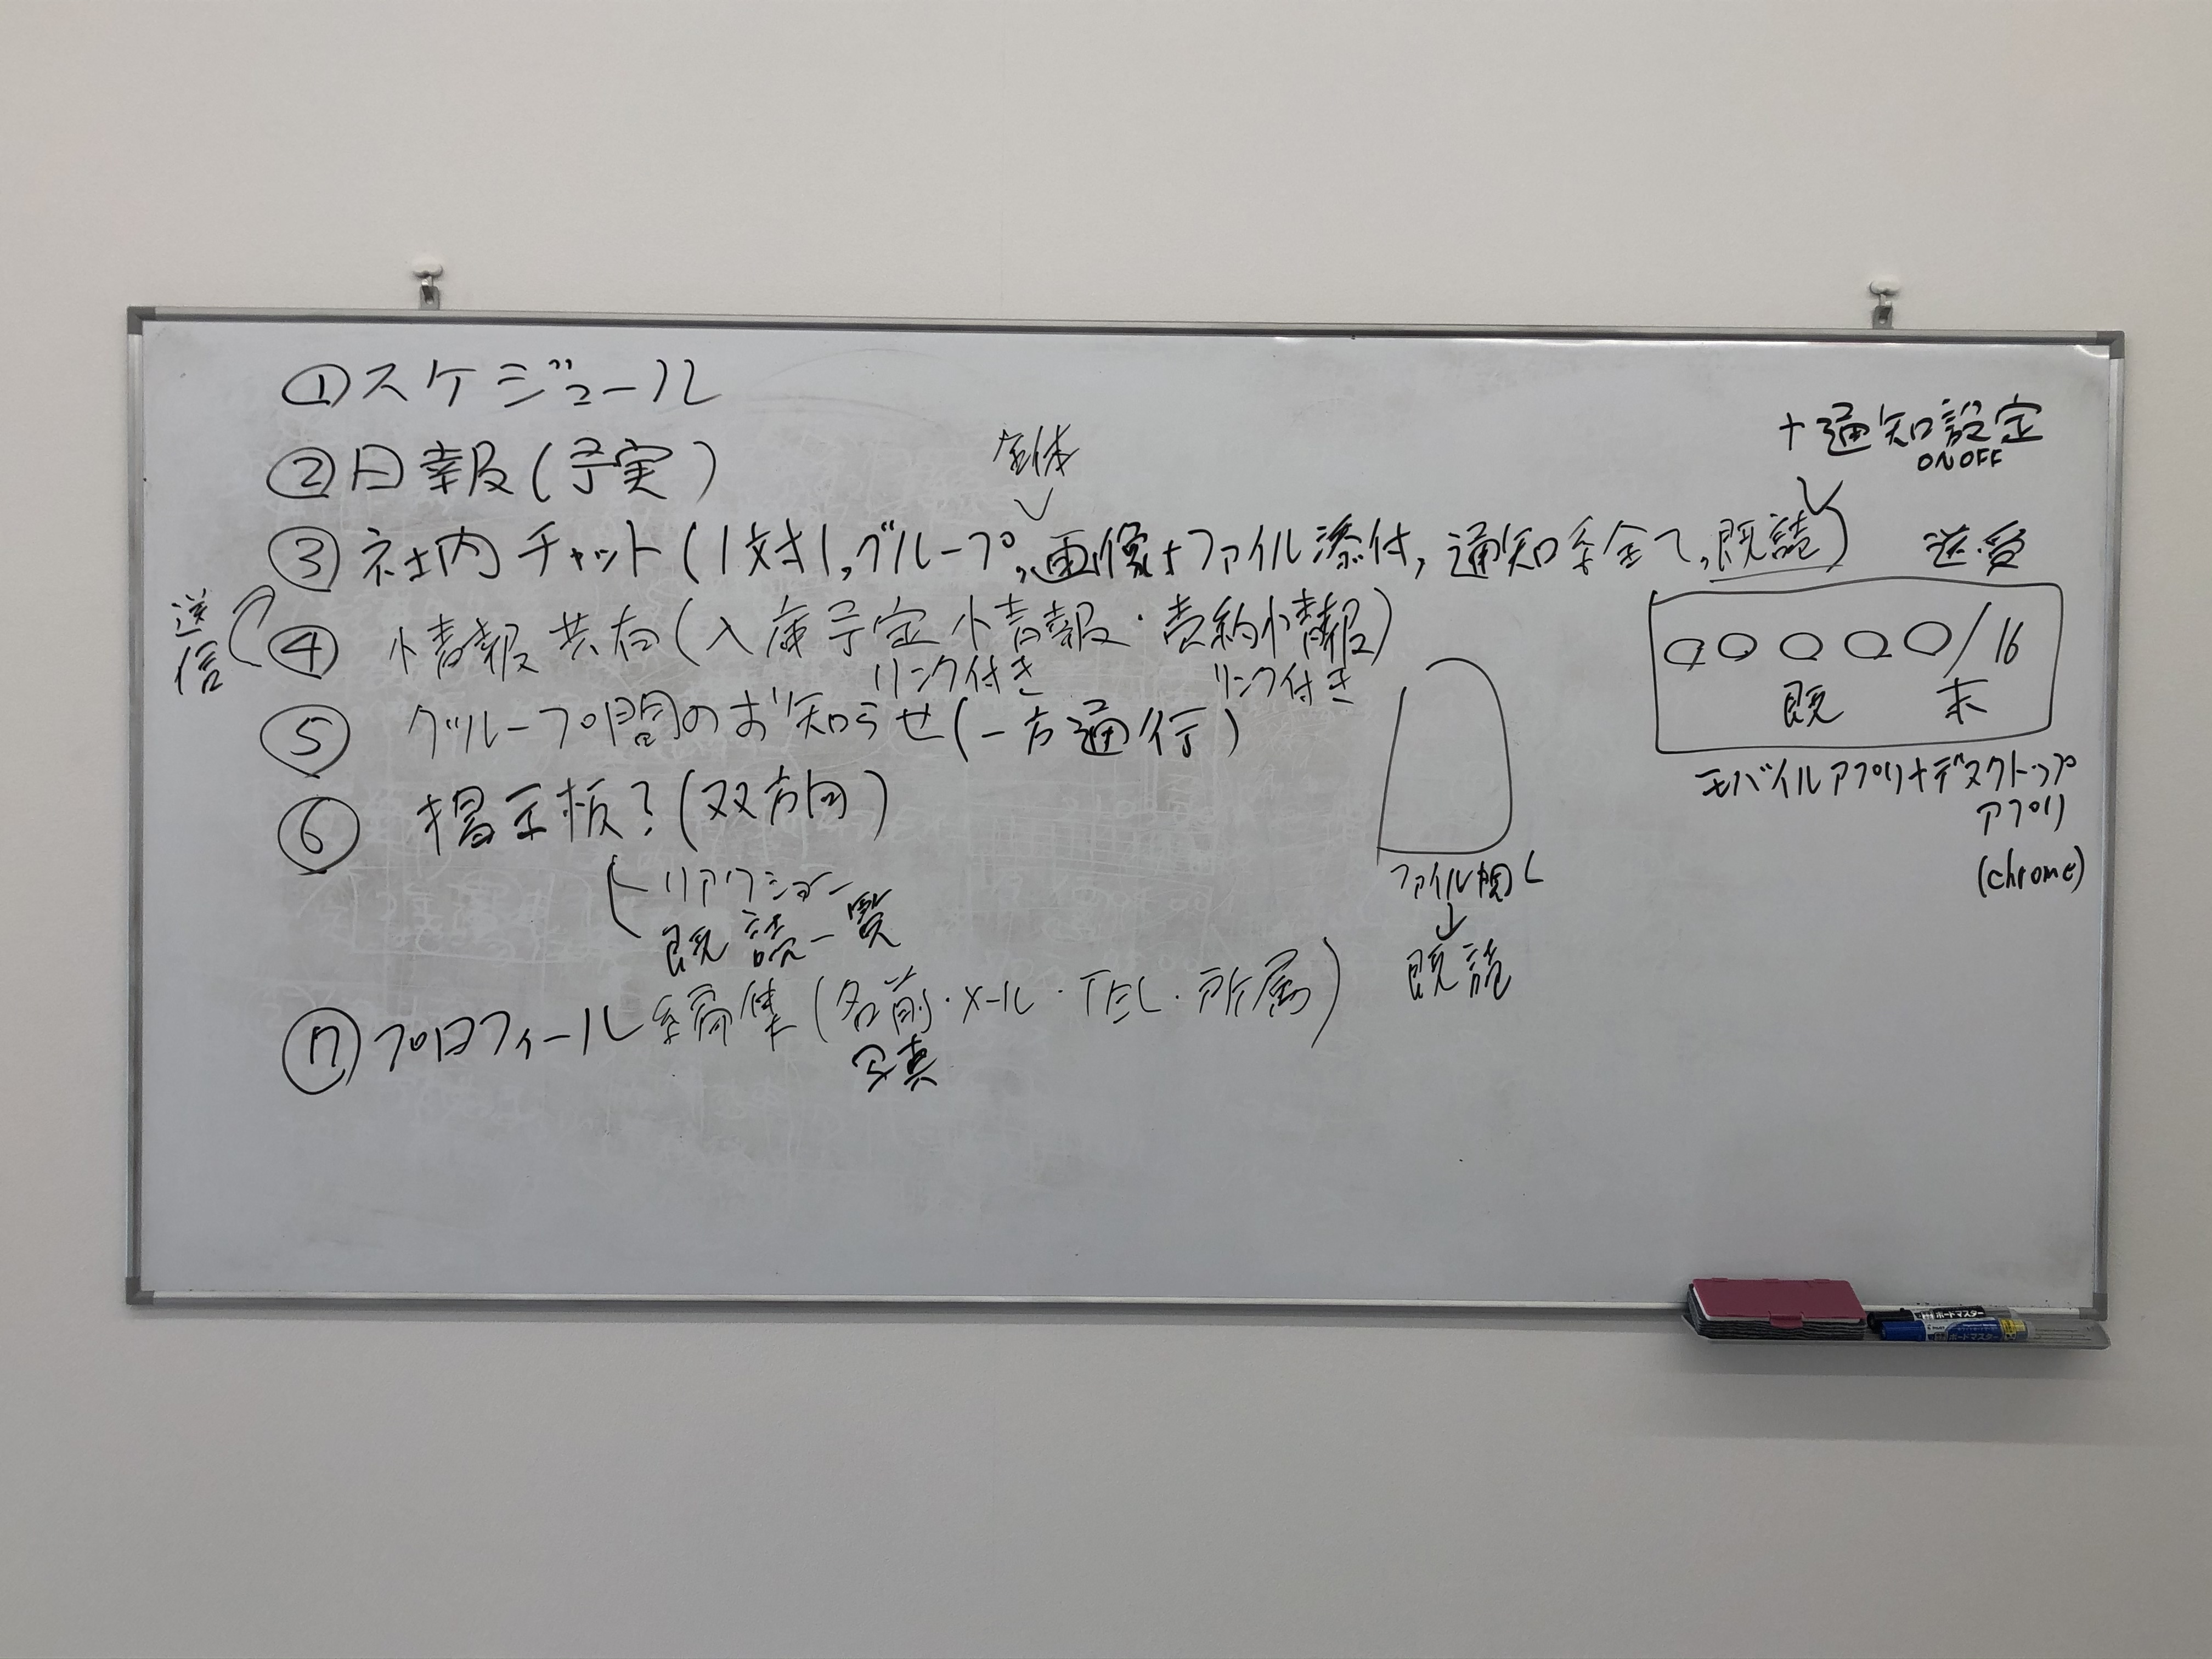 ①スケジュール
②日報(予実)
全体
+通知設定
ON OFF
③社内チャット(1対1,グループ,画像+ファイル添付,通知系全て,既読)
送・受
送信
④ 情報共有(入庫予定情報・売約情報)
リンク付き リンク付き
⑤ グループ間のお知らせ(一方通行)
⑥ 掲示板?(双方向)
リアクション
既読一覧
⑦プロフィール編集(名前・メール・TEL・所属)
写真
ファイル開く
↓
既読
○○○○○/16
既 未
モバイルアプリ+デスクトップ
アプリ
(chrome)
ボードマスター
ボードマスター